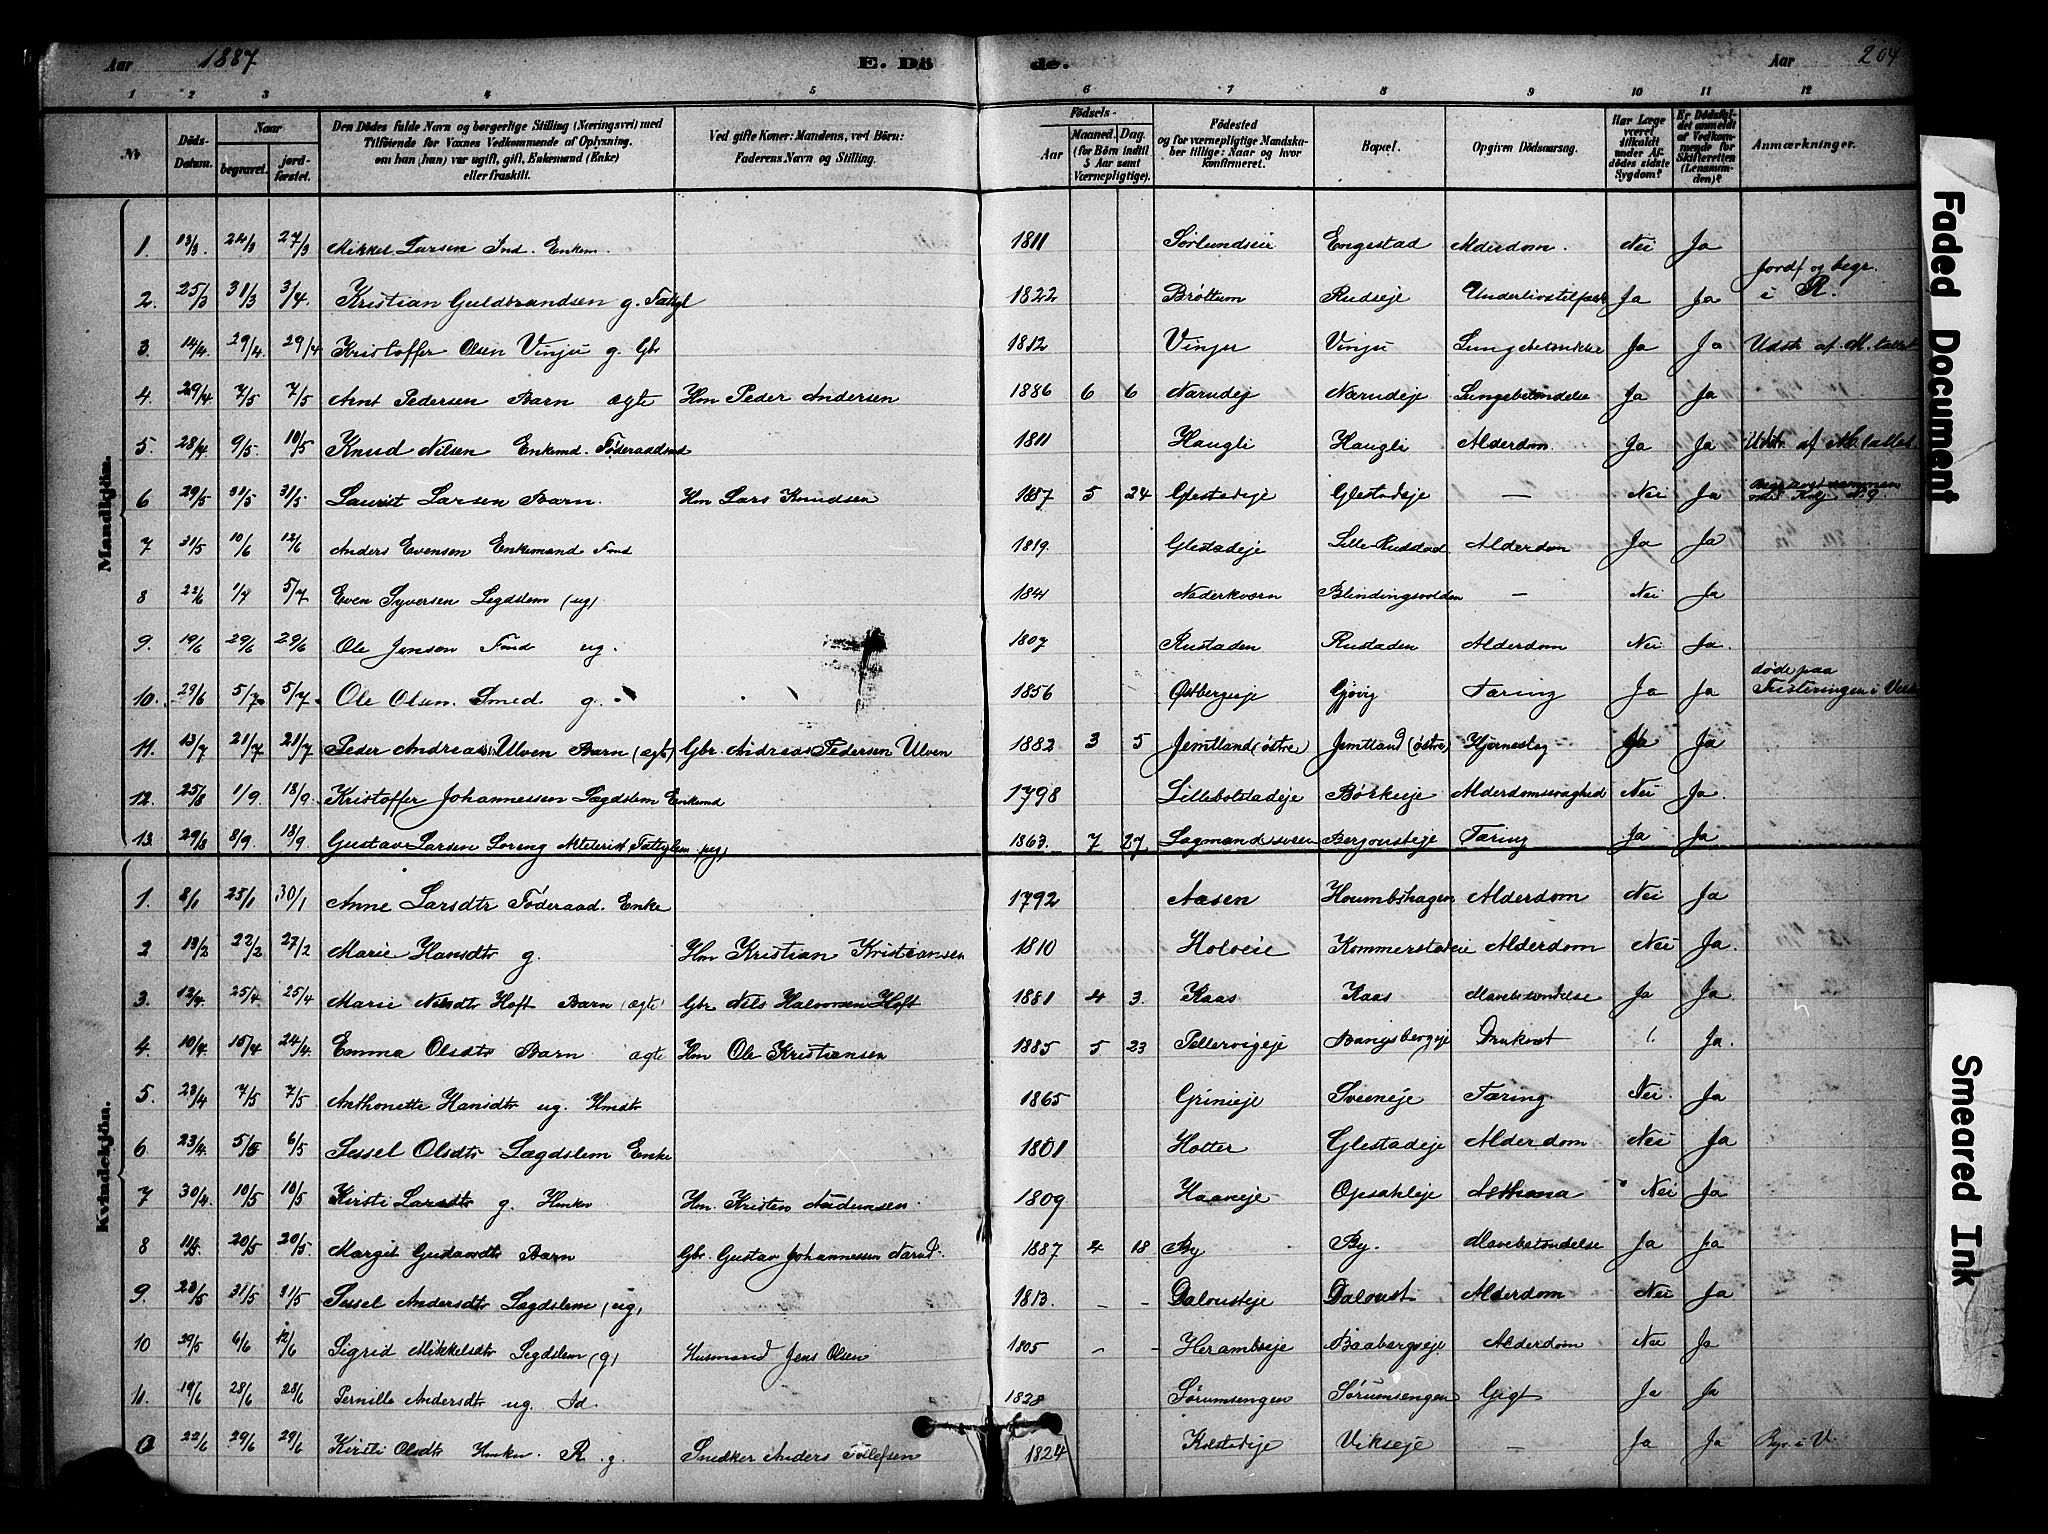 Aar 1887 E. Dö de. Aar 204
1 2 3 4 5 6 7 8 9 10 11 12
Nr.
Döds-Datum.
Naar
begravet.
jord-fæstet.
Den Dödes fulde Navn og borgerlige Stilling (Næringsvei) med
Tilföiende for Vaxnes Vedkommende af Oplysning,
om han (hun) var ugift, gift, Enkemand (Enke)
eller fraskilt.
Ved gifte Koner: Mandens, ved Börn:
Faderens Navn og Stilling.
Födsels-
Aar
Maaned. Dag.
(for Börn indtil
5 Aar samt
Værnepligtige).
Födested
og for værnepligtige Mandska-
ber tillige: Naar og hvor
konfirmeret.
Bopæl.
Opgiven Dödsaarsag.
Har Læge
været
tilkaldt
under Af-
dödes sidste
Sygdom?
Er Dödsfal-
det anmeldt
af Vedkom-
mende for
Skifteretten
(Lensman-
den)?
Anmærkninger.
Mandkjön.
1. 13/3 24/3 27/3 Mikkel Larsen Ind. Enkem. 1811 Sørlundseie Engestad Alderdom. Nei Ja
2. 25/3 31/3 3/4. Kristian Guldbrandsen g. Fattgl 1822 Brøttum Rudseje Ja Ja Jordf og begr. i R.
3. 14/4. 29/4. 29/4 Kristoffer Olsen Vinju g. Gbr 1812 Vinju Ja Ja Udstr. af M. tallet
4. 29/4. 7/5 7/5 Arnt Pedersen Barn ægte Hm Peder Andersen 1886 6 6 Narudej Narudeje Lungebetændelse Ja Ja
5 28/4 9/5. 10/5 Knud Nilsen Enkemd. Føderaadsmd 1811 Haugli Haugli Alderdom Ja Ja Udstr af M. tallet
6 29/5 31/5 31/5 Laurit Larsen Barn. Hm Lars Knudsen 1887 5 24 Glestadeje Glestadeje — Nei Ja Begravet sammen med Kvkj. N. 9
7 31/5 10/6 12/6 Anders Evensen Enkemand Fmd 1819. Glestadeje Lille Rudstad Alderdom Ja Ja
8 22/6 1/7 5/7 Even Syversen Legdslem (ug) 1841 Næderkværn Blindingsvolden — Nei Ja
9 19/6 29/6 29/6 Ole Jensen Fmd ug. 1807 Rustaden Rustaden Alderdom Nei Ja.
10. 29/6 5/7. 5/7. Ole Olsen. Smed g. 1856 Østbergeje Gjøvig Tæring Ja Ja døde paa
11. 13/7 21/7 21/7 Peder Andreas Ulven Barn (ægte) Gbr. Andreas Pedersen Ulven 1882 3 5 Jemtland (østre) Jemtland (østre) Hjerneslag Ja Ja
12. 25/8 1/9. 18/9. Kristoffer Johannessen Lægdslem Enkemd 1798 Lillebolstadeje Børkeeje Alderdomssvaghed Nei Ja.
13. 29/8 8/9. 18/9. Gustav Larsen Loreng Fattiglem (ug) 1863. 7 27 Bergousteje Tæring Ja Ja
Kvindekjön.
1. 8/1 25/1 30/1 Anne Larsdtr Føderaad. Enke 1792 Aasen Houmbshagen Alderdom Nei Ja
2 13/2 22/2 27/2 Marie Hansdtr g. Hm Kristian Kristiansen 1810 Holoeie Kommerstadeie Alderdom Nei Ja.
3. 13/4 25/4 25/4 Marie Nilsdtr Hoft Barn (ægte) Gbr Nils Halvorsen Hoft 1881 4 3. Kaas Kaas Mavebetændelse Ja Ja.
4. 10/4. 15/4 24/4. Emma Olsdtr Barn ægte Hm Ole Kristiansen 1885 5 23 Pellervigeje Bangsbergeje Druknet ! Ja.
5. 23/4 7/5 7/5 Anthonette Hansdtr ug. Hmdtr 1865 Grinieje Sveeneje Tæring Nei. Ja
6 23/4. 5/5 6/5 Sessel Olsdtr Lægdslem Enke 1801 Hotter Glestadeje Alderdom Nei Ja
7 30/4. 10/5 10/5 Kirsti Larsdtr g. Hmkn Hm. Kristen Audunsen 1809 Haaneje Opsahleje Asthma Nei Ja
8 11/5. 20/5 20/5. Margit Gustavdtr Barn Gbr. Gustav Johannessen Narud. 1887 4 18 By By. Mavebetændelse Ja Ja
9. 23/5 31/5 31/5 Sessel Andersdtr Lægdslem (ug) 1813. – – Dalousteje Daloust Alderdom Nei Ja
10 29/5 6/6 12/6 Sigrid Mikkelsdtr Legdslem (g) Husmand Jens Olsen 1805 – – Herambseje Baabergseje Alderdom Nei Ja
11. 19/6 28/6 28/6 Pernille Andersdtr ug. Id. 1828 Sørumsengen Sørumsengen Gigt Ja Ja
22/6 29/6 29/6 Kirsti Olsdtr Hmkn R. g. Snedker Anders Tollefsen 1824 Kolstadeje Vikseje — Ja Ja Bgr. i V.
Faded Document
Smeared Ink